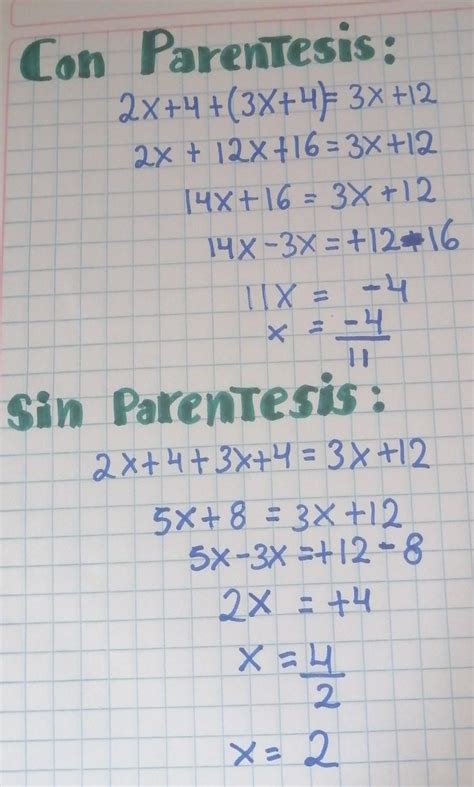 Con Parentesis:
2x+4+(3x+4)=3x+12
2x+12x+16=3x+12
14x+16=3x+12
14x-3x=+12-16
11x=-4
x=-4/11
Sin Parentesis:
2x+4+3x+4=3x+12
5x+8=3x+12
5x-3x=+12-8
2x=+4
x=4/2
x=2